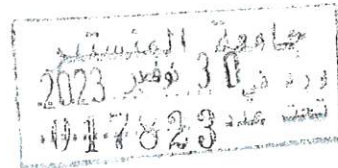 جامعة المنستير
ورد في 30 نوفمبر 2023
تحت عدد 017823